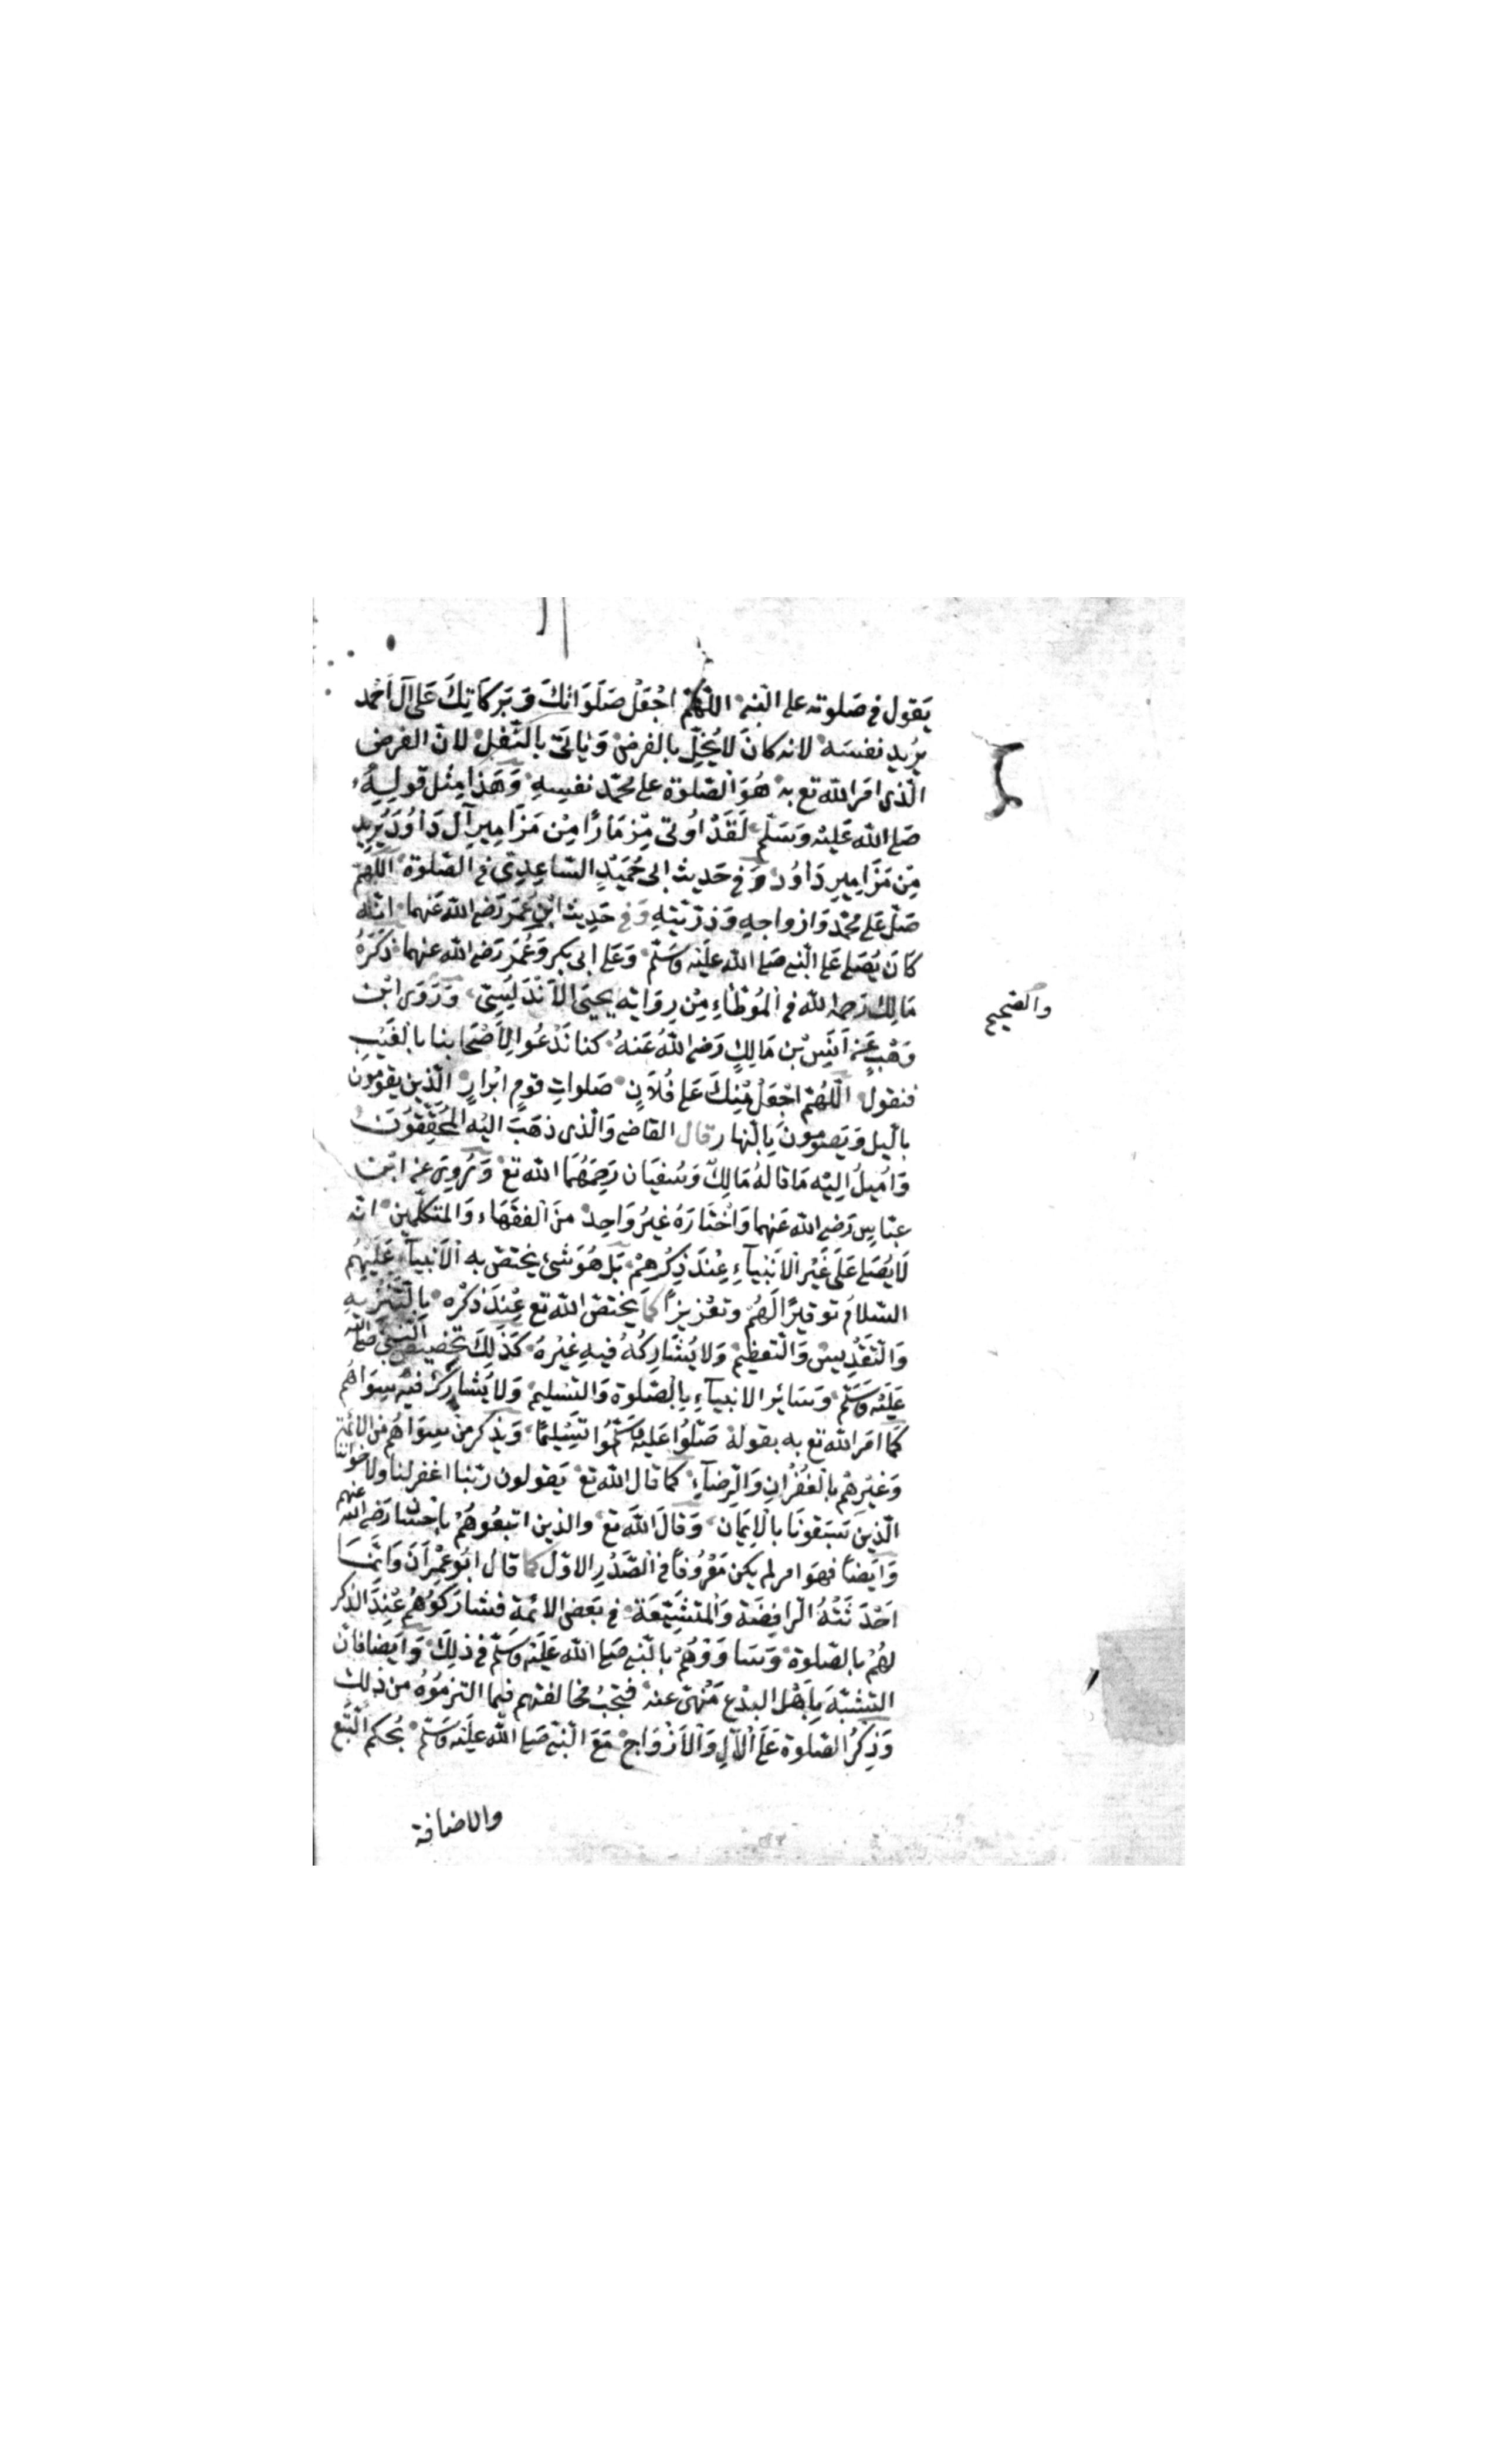 يَقول في صَلوته على النبي اللّهُمّ اجْعَلْ صَلَوَاتِكَ وَبَرَكَاتِكَ عَلى آل أحْمد
يُريد نفسَه لانه كانَ لا يُخِلّ بالفرض وَيَاتي بالنّفل لانّ الفرض
الّذى امَر الله تع به هُوَ الصّلوة على محمّد نفسِهِ وَهَذا مِثْل قولِهِ
صَلى الله عَليْه وَسَلّم لَقَدْ اُوتى مِزْمَارًا مِنْ مَزَامِير آل دَاوُدَ يُريد
مِنْ مَزَامِيرِ دَاوُد وَفي حَديث ابى حُمَيْدٍ السّاعِدِىّ في الصّلوة اللّهُمّ
صَلّ عَلى محمّد وَازواجِهِ وَذرّيّتِهِ وَفي حَدِيث ابْن عُمَر رَضى الله عَنهما انّه
كانَ يُصَلى عَلى النّبى صَلى الله عَليْه وَسَلّم وَعَلى ابى بكر وَعُمَر رَضى الله عنهما ذكَرَهُ
مَالِك رَحمه الله في الْمُوَطّاءِ مِنْ رِوَايَة يحيى الاَنْدَلُسِيّ وَرَوَى ابْن
والصّحيح
وَهْبٍ عَنْ اَنَسِ بْن مَالِكٍ رَضى اللهُ عَنهُ كنا نَدْعُوا لِاَصْحَابنا بالغَيْبِ
فنقول اللّهُمّ اجْعَلْ مِنْكَ عَلى فُلاَنٍ صَلواتِ قوْمٍ ابْرارٍ الّذين يقومُون
بالّيل وَيَصُومُونَ بِالنّهار قال القاضى وَالّذى ذهَبَ اليْه الْمُحَقّقُونَ
وَاَمِيلُ اِليْه مَا قالَهُ مَالِكٌ وَسُفيَان رَحِمَهُمَا الله تع وَرُوِىَ عن ابْن
عبّاسٍ رَضى الله عَنهما وَاخْتارَهُ غيْرُ وَاحِد منَ الْفقَهَاء وَالمتكلّمين انّه
لَا يُصَلى عَلَى غَيْر الاَنْبيآءِ عِنْدَ ذِكْرِهِمْ بَلْ هُوَ شئ يختصّ به الاَنبيآء عَليْهِمُ
السّلامُ توقيرًا لَهُمْ وتعْزيزًا كما يختصّ الله تع عِنْدَ ذكْره بِالتّنْزِيهِ
وَالتّقْدِيسْ وَالتّعظيم وَلا يُشَاركُهُ فيهِ غيْرهُ كذلِكَ تخْصيصُ النّبىّ صَلى الله
عَليْه وَسَلّم وَسَائر الانبيآءِ بِالصّلوة وَالتسْليم وَلا يُشَارَكُ فيْه سِوَاهُمْ
كَمَا امَر الله تع به بقوله صَلّوا عَليْهِ وَسَلّمُوا تسْلِيمًا وَيُذكر مَنْ سِوَاهُمْ مِنَ الائمّة
وَغيْرهِمْ بالْغُفْرانِ وَالرّضآءِ كما قال الله تع يَقولون رَبّنا اغفر لنا ولاخواننا
الّذينَ سَبَقونا بالْاِيمَان وَقالَ الله تع والذين اتّبعُوهُمْ باحْسَان رَضى الله عنهم
وَايْضاً فهوَ امر لم يكن مَعْرُوفاً في الصّدْر الاوّل كما قال ابُو عِمْرَانَ وَانّمَا
اَحْدَثَتْهُ الرّافِضَة وَالمتشيّعَة في بَعض الائمّة فشارَكوُهُمْ عِنْدَ الذكر
لهُمْ بالصّلوة وَسَاوَوْهُمْ بالنّبى صَلى الله عَليْه وَسَلّم في ذلِكَ وَايضا فانّ
التشبّهَ بِاَهْل البدَع مَنْهىّ عَنْه فتجبُ مخالفتهم فيما التزمُوهُ من ذلِكَ
وَذِكرُ الصّلوة عَلَى الْآلِ وَالْاَزْوَاج مَعَ النّبى صَلى الله عَليْه وَسَلّم بُحكم التّبَع
والاضافة